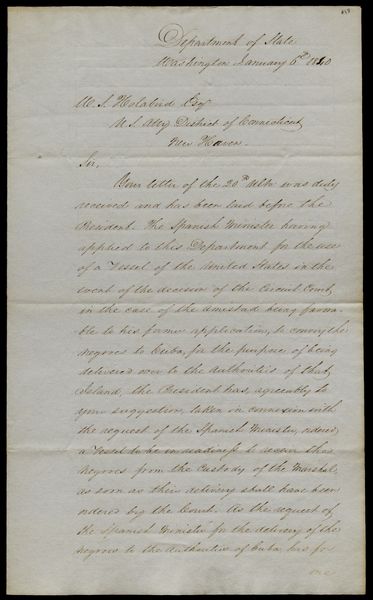 Department of State
Washington January 6th 1840
W. S. Holabird Esq
U. S. Atty District of Connecticut
New Haven.
Sir,
Your letter of the 20th Ulto was duly
received and has been laid before the
President. The Spanish Minister having
applied to this Department for the use
of a Vessel of the United States in the
event of the decision of the Circuit Court
in the case of the Amistad being favora-
ble to his former application, to convey the
negroes to Cuba, for the purpose of being
delivered over to the authorities of that
Island, the President has, agreeably to
your suggestion, taken in connexion with
the request of the Spanish Minister, ordered
a Vessel to be in readiness to receive the
negroes from the custody of the Marshal
as soon as their delivery shall have been
ordered by the Court. As the request of
the Spanish Minister for the delivery of the
negroes to the authorities of Cuba has for
one